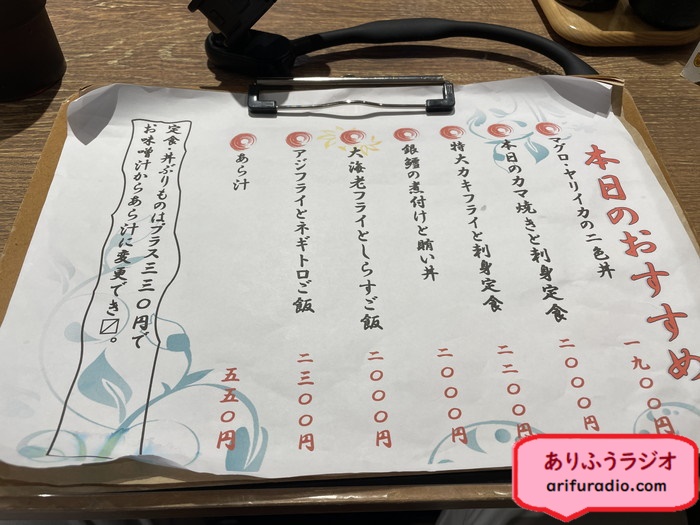 本日のおすすめ
マグロ・ヤリイカの二色丼 一九〇〇円
本日のカマ焼きと刺身定食 二〇〇〇円
特大カキフライと刺身定食 二二〇〇円
銀鱈の煮付けと賄い丼 二〇〇〇円
大海老フライとしらすご飯 二〇〇〇円
アジフライとネギトロご飯 二三〇〇円
あら汁 五五〇円
定食・丼ぶりものはプラス三三〇円で
お味噌汁からあら汁に変更でき〼。
ありふうラジオ
arifuradio.com